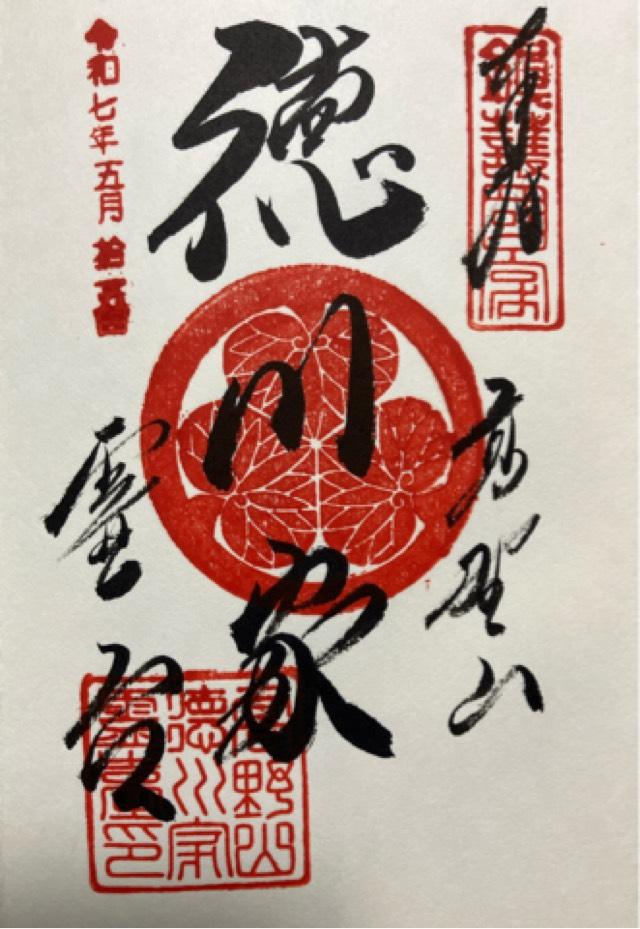 奉拝
鎮護国家
高野山
徳川家
霊台
令和七年五月拾五日
高野山
徳川家
霊台印